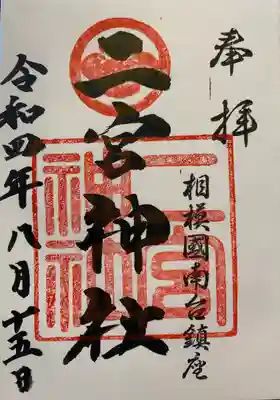 奉拝
相模國南台鎮座
二宮神社
令和四年八月十五日